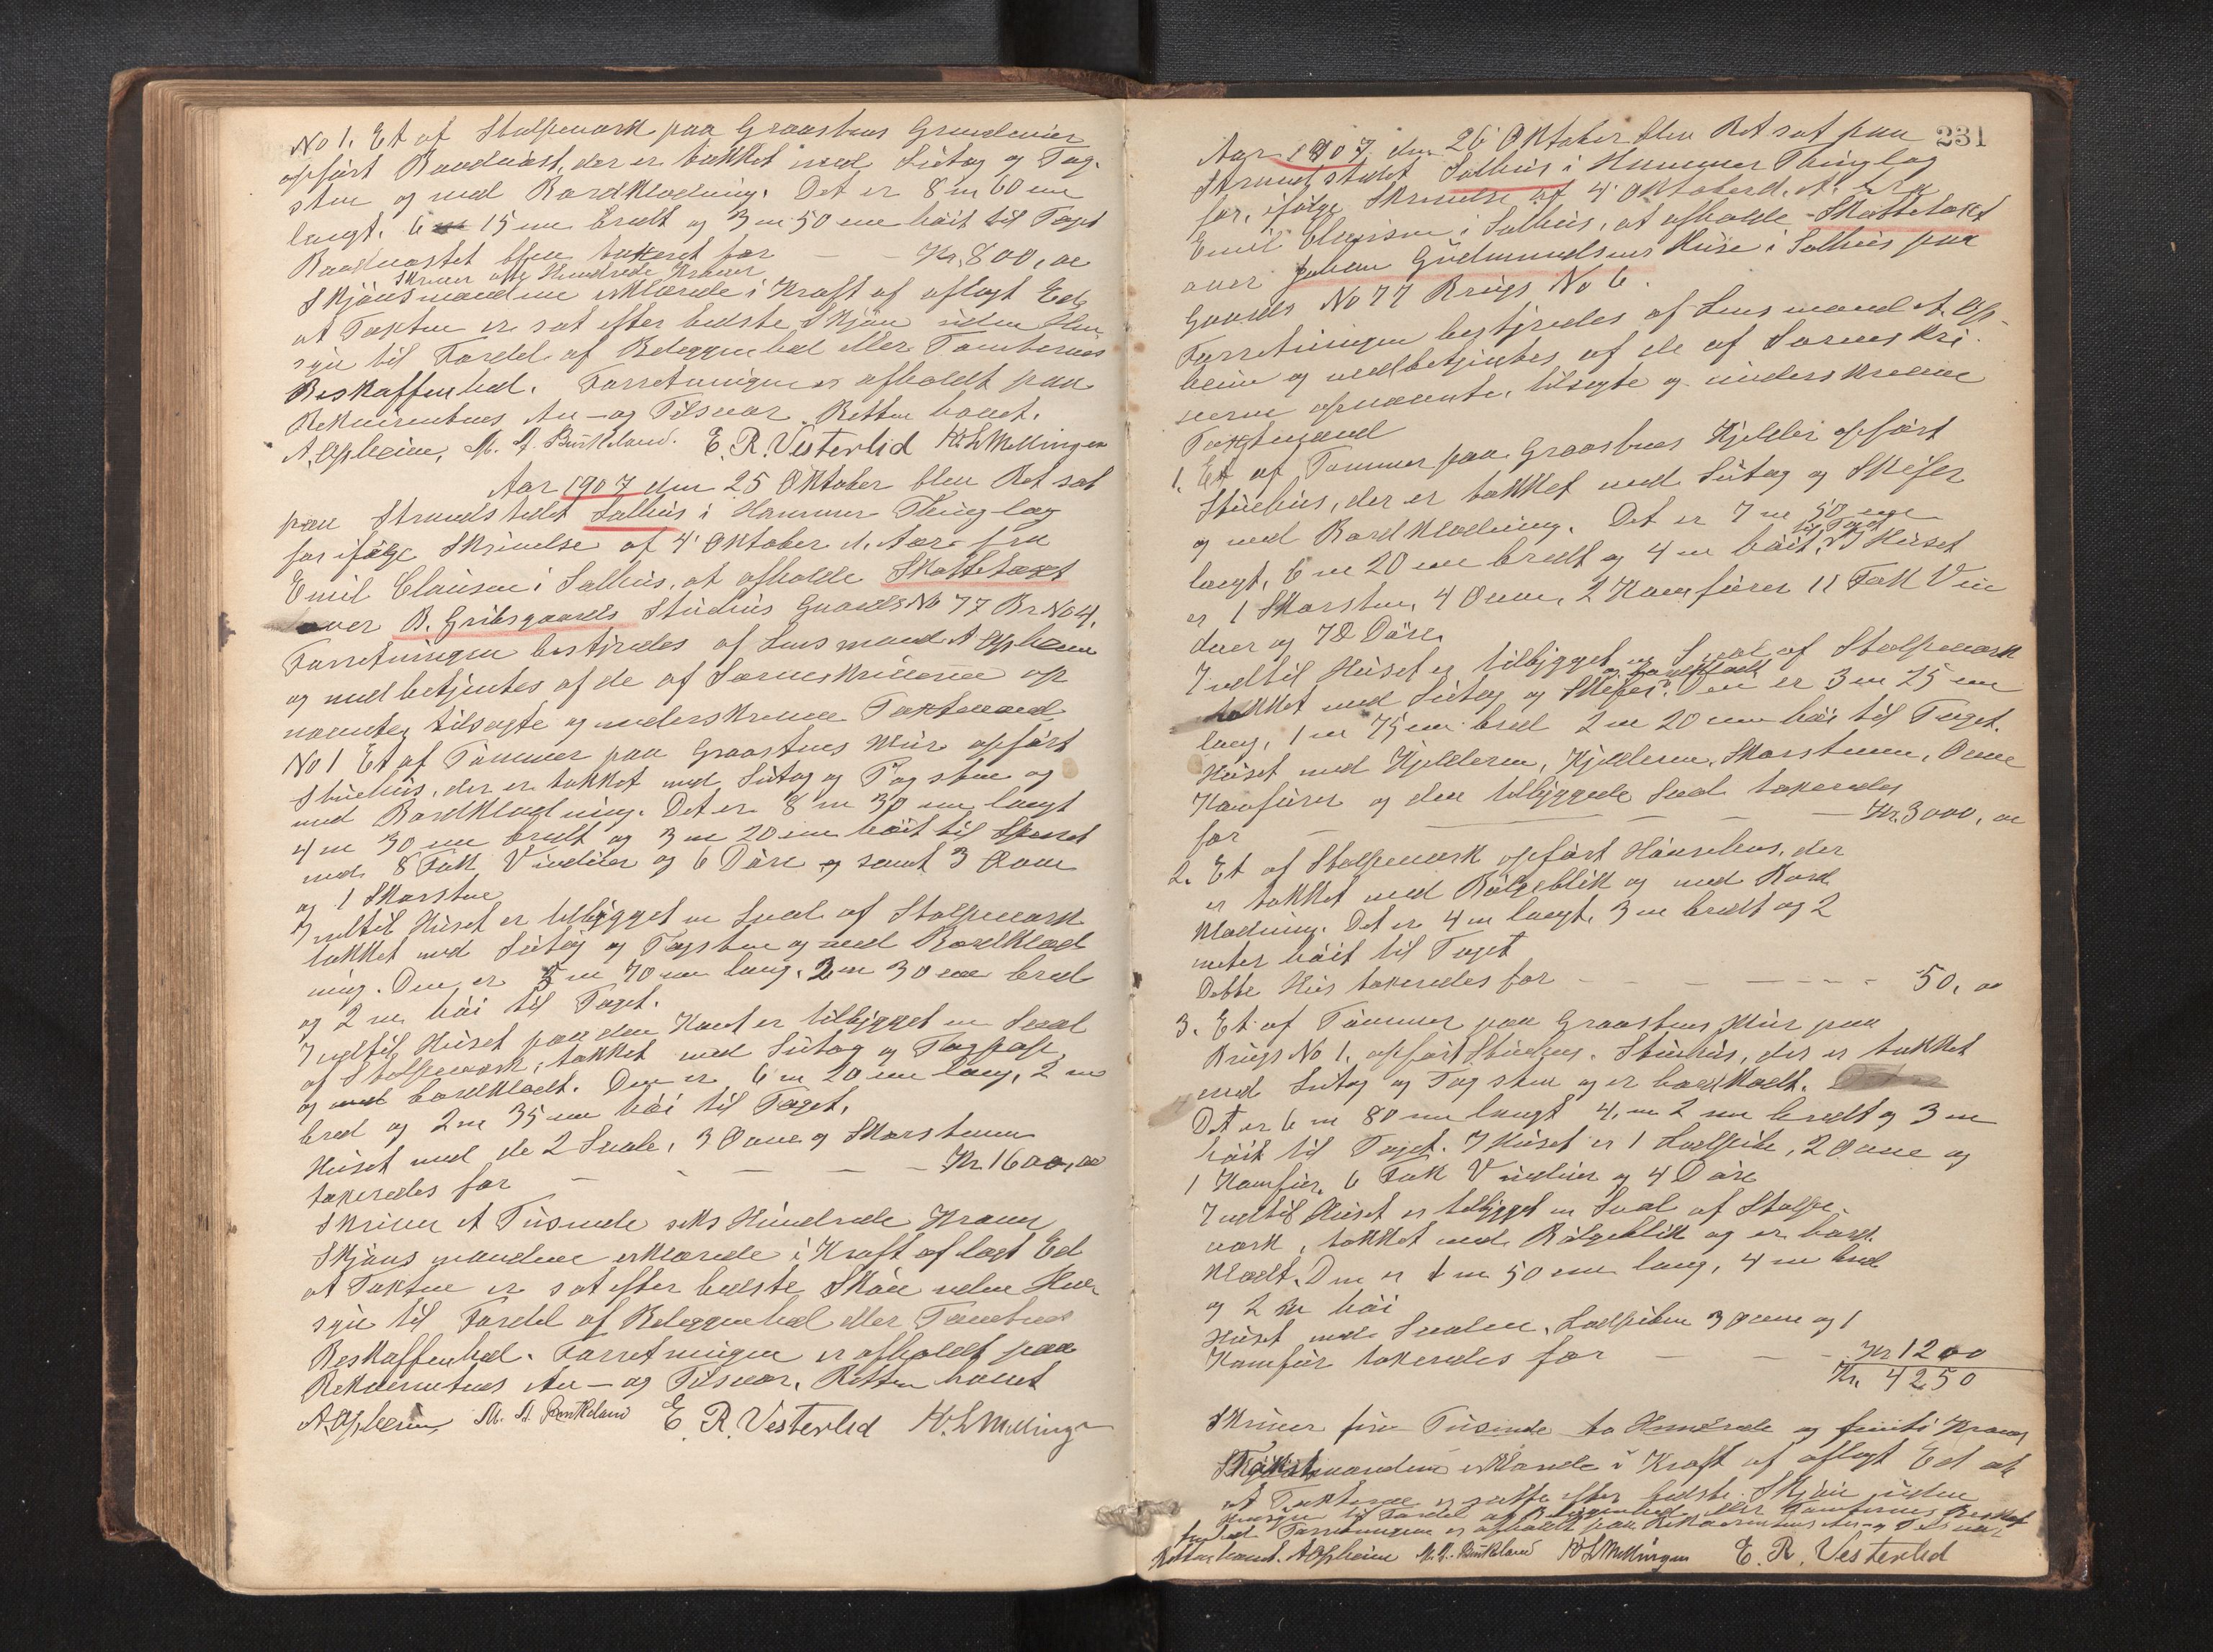 No 1. Et af Stolpeværk paa Graastens Grundmur
opført Baadnøst, der er tækket med Sutag og Tag-
sten og med Bordklædning. Det er 8 m 60 cm
langt. 6 m 15 cm bredt og 3 m 50 cm høit til Taget
Baadnøstet blev taxeret for — — Kr. 800,00
Skriver otte Hundrede Kroner
Skjønsmændene erklærede i Kraft af aflagt Ed,
at Taxten er sat efter bedste Skjøn uden Hen
syn til Fordel af Beleggenhed eller Tomternes
Beskaffenhed. Forretningen er afholdt paa
Rekvirentens An- og Tilsvar. Retten hævet.
A. Opheim, M. A. Birkeland. E. R. Vesterlid K L Mellingen
Aar 1907 den 25 Oktober blev Ret sat
paa Strandstedet Salhus i Hammer Thinglag
for ifølge Skrivelse af 4' Oktober d. Aar fra
Emil Clausen i Salhus, at afholde Skattetaxt
over B. Griisgaards Stuehus Gaards No 77 Br No 4.
Forretningen bestyredes af Lensmand A Opheim
og med betjentes af de af Sorenskriveren op
nævnte, tilsagte og underskrevne Taxtmænd
No 1 Et af Tømmer paa Graastens Mur opført
Stuehus, der er tækket med Sutag og Tagsten og
med Bordklædning. Det er 8 m 30 cm langt
4 m 30 cm bredt og 3 m 20 cm høit til Taget
med 8 Fak Vinduer og 6 Døre og samt 3 Ovne
og 1 Skorsten
Indtil Huset er tilbygget en Sval af Stolpeværk
tækket med Sutag og Tagsten og med Bordklæd
ning. Den er 5 m 70 cm lang. 2 m 30 cm bred
og 2 m høi til Taget.
Indtil Huset paa den Kant er tilbygget en Sval
af Stolpeværk, tækket med Sutag og Tagpap
og med bordklædt. Den er 6 m 20 cm lang, 2 m
bred og 2 m 35 cm høi til Taget.
Huset med de 2 Svale, 3 Ovne og Skorstenen
taxeredes for — — — — Kr. 1600,00
Skriver Et Tusinde seks Hundrede Kroner
Skjønsmændene erklærede i Kraft aflagt Ed
at Taxten er sat efter bedste Skjøn uden Hen
syn til Fordel af Beleggenhed eller Tomternes
Beskaffenhed. Forretningen er afholdt paa
Rekvirentens An- og Tilsvar. Retten hævet
A. Opheim M. A. Birkeland E. R. Vesterlid K. L Mellingen
231
Aar 1907 den 26 Oktober blev Ret sat paa
Strandstedet Salhus i Hammer Thinglag
for, ifølge Skrivelse af 4' Oktober d. A. fra
Emil Clausen i Salhus, at afholde Skattetaxt
over Johan Gudmundsens Huse i Salhus paa
Gaards No 77 Brugs No 6.
Forretningen bestyredes af Lensmand A. Op-
heim og medbetjentes af de af Sorenskri-
veren opnævnte, tilsagte og underskrevne
Taxtmænd
1. Et af Tømmer paa Graastens Kjelder opført
Stuehus, der er tækket med Sutag og Skifer
og med Bordklædning. Det er 7 m 50 cm
langt, 6 m 20 cm bredt og 4 m høit til Taget. I Huset
er 1 Skorsten, 4 Ovne, 2 Komfurer 11 Fak Vin
duer og 12 Døre.
Indtil Huset er tilbygget en Sval af Stolpeværk
tækket med Sutag og Skifer og bordklædt. Den er 3 m 25 cm
lang, 1 m 75 cm bred 2 m 20 cm høi til Taget.
Huset med Kjelderen, Kjelderen, Skorstenen, Ovne
Komfurer og den tilbyggede Sval taxeredes
for — — — — — Kr. 3000,00
2. Et af Stolpeværk opført Hønsehus, der
er tækket med Bølgeblik og med Bord
klædning. Det er 4 m langt, 3 m bredt og 2
meter høit til Taget
Dette Hus taxeredes for — — — — 50,00
3. Et af Tømmer paa Graastens Mur paa
Brugs No 1. opført Stuehus, der er tækket
med Sutag og Tagsten og er bordklædt.
Det er 6 m 80 cm langt 4, m 2 cm bredt og 3 m
høit til Taget. I Huset er 1 Lodpibe, 2 Ovne og
1 Komfur, 6 Fak Vinduer og 4 Døre
Indtil Huset er tilbygget en Sval af Stolpe-
værk, tækket med Bølgeblik og er bord
klædt. Den er 1 m 50 cm lang, 4 m bred
og 2 m høi
Huset med Svalen, Lodpiben 3 Ovne og 1
Komfur taxeredes for — — — Kr 1200
Kr. 4250
Skriver fire Tusinde to Hundrede og femti Kroner
Skjønsmændene erklærede i Kraft af aflagt Ed at
at Taxterne er satte efter bedste Skjøn uden
Hensyn til Fordel af Beliggenhed eller Tomternes Beskaf
fenhed Forretningen er afholdt paa Rekvirentens An- og Tilsvar
Retten hævet. A Opheim M. A. Birkeland K L Mellingen E. R. Vesterlid